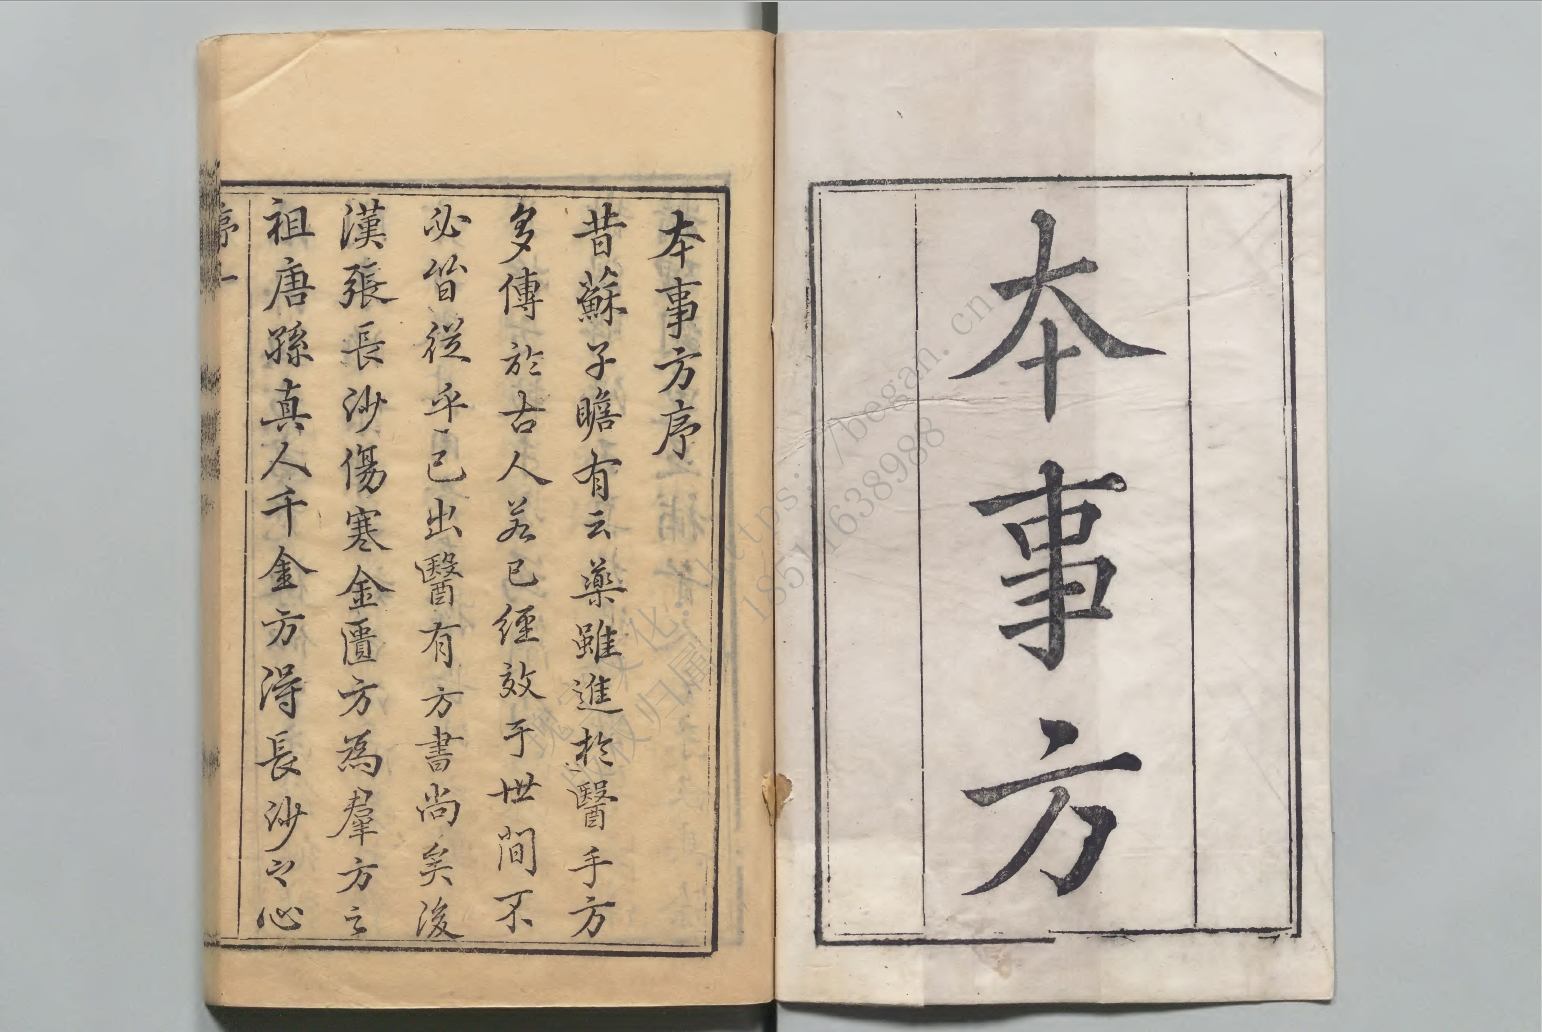 本事方
本事方序
昔蘇子瞻有云藥雖進於醫手方
多傳於古人若已經效于世間不
必皆從乎已出醫有方書尚矣後
漢張長沙傷寒金匱方為羣方之
祖唐孫真人千金方得長沙之心
序一
https://began.cn
18511638988
版权归属